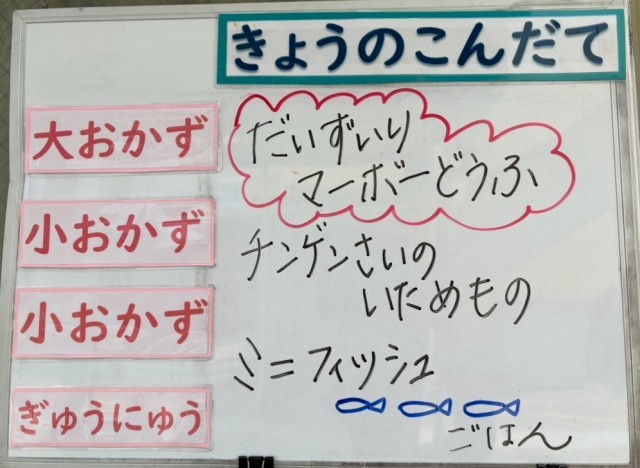 きょうのこんだて
大おかず
だいずいり
マーボーどうふ
小おかず
チンゲンさいの
いためもの
小おかず
ミニフィッシュ
ぎゅうにゅう
ごはん